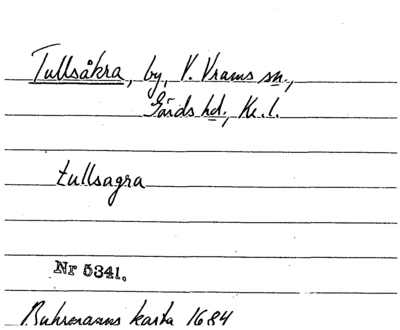 Tullsåkra, by, V. Vrams sn.,
Gärds hd., Kr. l.
tullsagra
Nr 5341.
Buhrmanns karta 1684